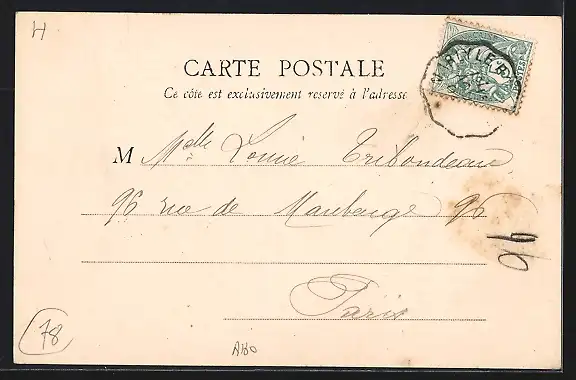 H
CARTE POSTALE
Ce côté est exclusivement reservé à l'adresse
M Melle Louise Tribondeau
96 rue de Maubeuge 96
96
Paris
78